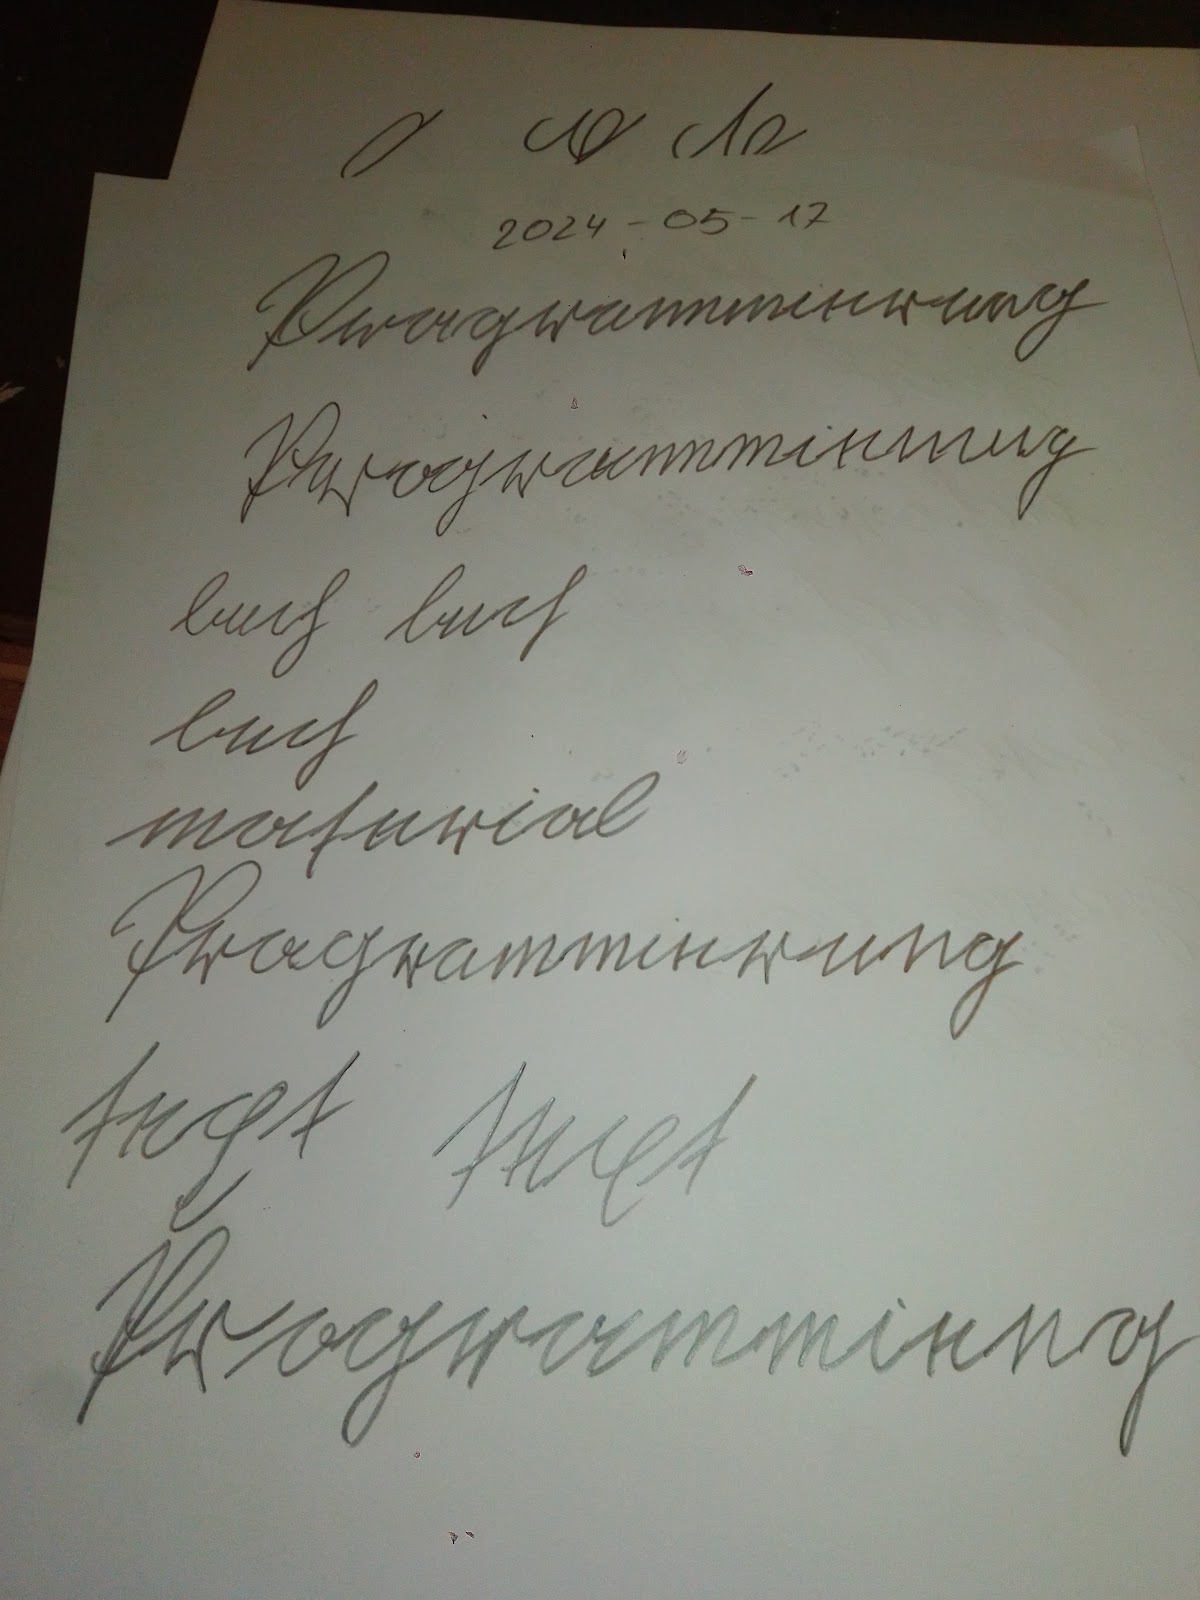 2024-05-17
Programmierung
Programmierung
buch buch
buch
material
Programmierung
text text
Programming